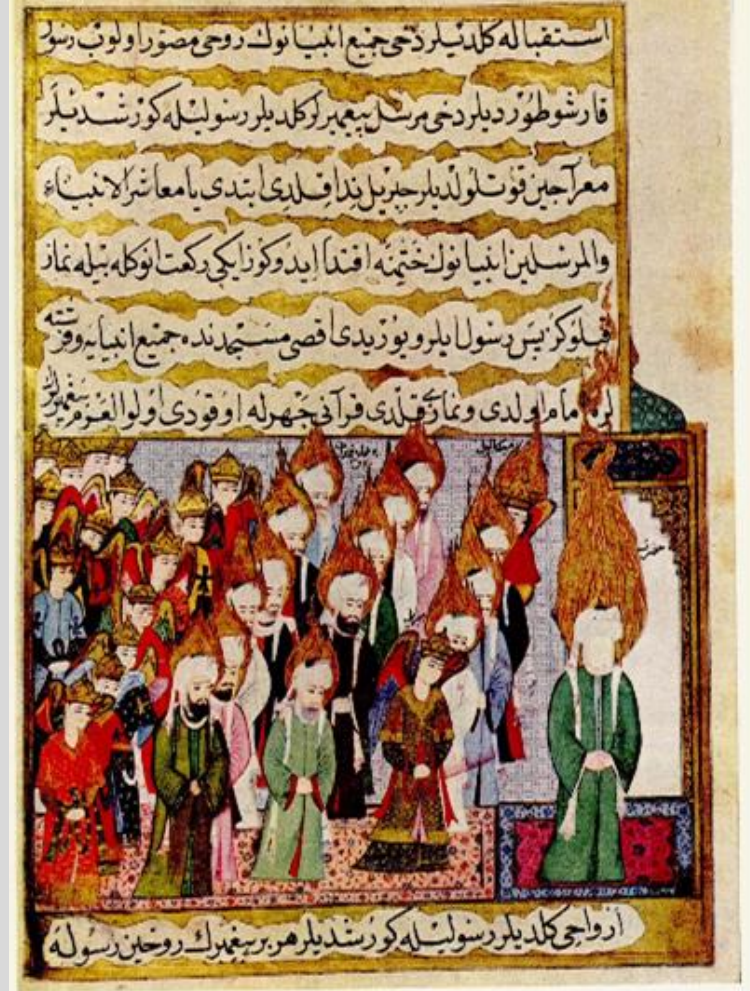 استقباله كلديلر دخی جميع انبيانوك روحی مصور اولوب رسول
قارشو طوردیلر دخی مرسل پیغمبرلر كلدیلر رسولیله كورشدیلر
معراجین قوتلولدیلر جبریل ندا قلدی ایتدی یا معاشر الانبیاء
والمرسلین انبیانوك ختمنه اقتدا ایدوكوز ایكی ركعت انوكله بیله نماز
قیلوكز پس رسول ایلرو یوریدی اقصی مسجدنده جمیع انبیایه وفرشته
لره امام اولدی ونمازی قلدی قرآنی جهرله اوقودی اولوالعزم پیغمبرلر
میكائیل
ارواحی كلدیلر رسولیله كورشدیلر هر بر پیغمبرك روحین رسوله